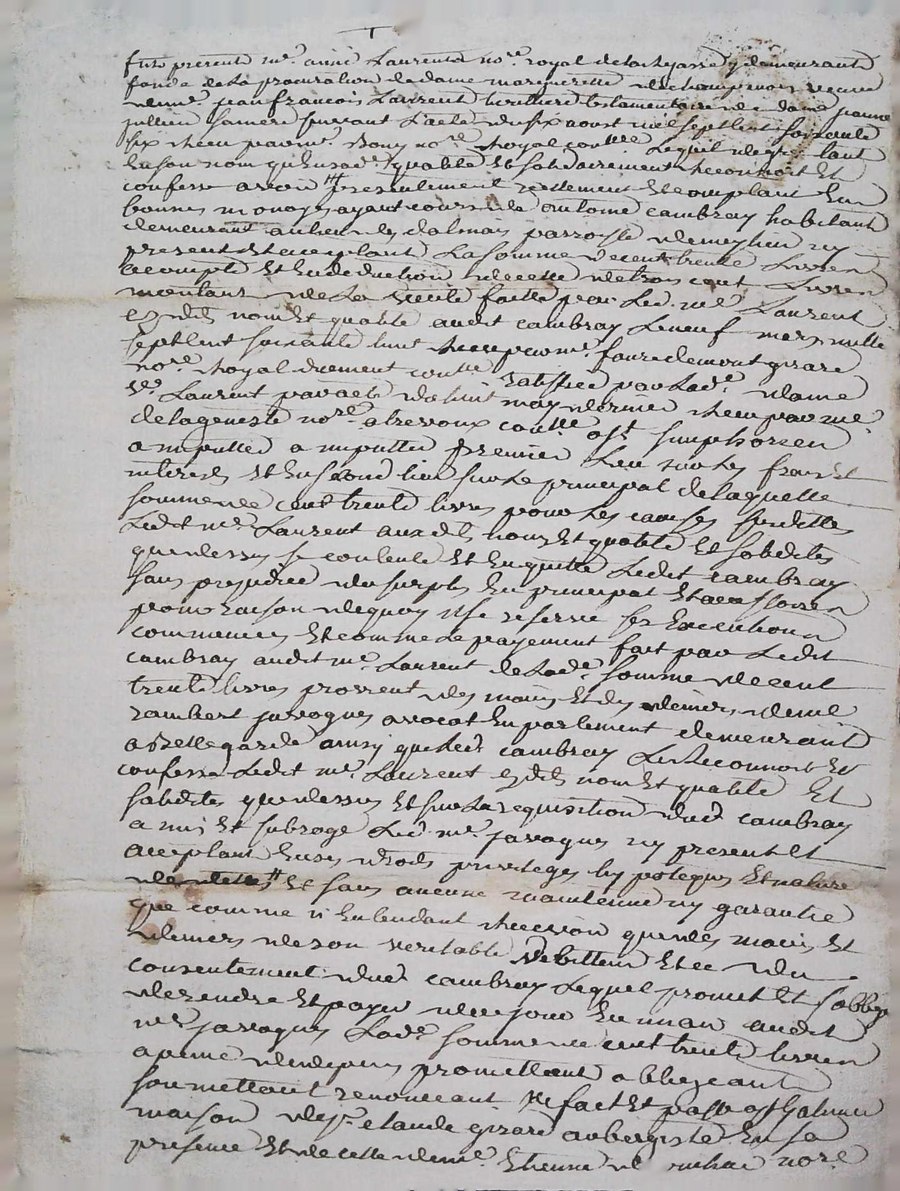 fut present me. aimé Laurent nore. royal de la Chassé y demeurant
fondé de la procuration de dame marguerite de champenois veuve
de me. jean francois Laurent heritiere testamentaire de dame jeanne
jullien suivant l'acte du six aoust mil sept cent soixante
six receu par me. nore. Royal lequel de gré tant
en son nom qu'en sade. qualité et solidairement reconnoit et
confesse avoir presentement reellement et comptant en
bonnes monoyes ayant cours de antoine cambray habitant
demeurant au lieu de dalmais parroisse de meylieu icy
present et acceptant la somme de cent trente Livres
acompte et en deduction de celle de trois cent Livres
montant de la faitte par led. me. Laurent
esdts. nom et qualité audit cambray le neuf mars mille
sept cent soixante huit receu par me. faure de montgirard
nore. royal duement conttle. ratiffiée par lad. dame
ve. Laurent par acte du huit may dernier receu par me.
delageneste nore. a conttle. a st simphorien
a imputter a imputter premier lieu sur les frais et
interets et en second lieu sur le principal de laquelle
somme de cent trente livres pour les causes susdittes
Ledit me. Laurent auxdts. noms et qualité et solidités
que dessus se contente et en quitte Ledit cambray
sans prejudice du surplus en principal et accessoires
pour raison de quoy il se reserve ses Executions
commencées et comme le payement fait par Ledit
cambray audit me. Laurent de Lade. somme de cent
trente livres provient des mains et des deniers de me
rambert javogues avocat en parlement demeurant
a Bellegarde ainsy que led. cambray Le reconnoit et
confesse Ledit me. Laurent esdts. nom et qualité et
solidités que dessus et sur la requisition dud. cambray
a mis et subrogé Led. me. javogues icy present et
acceptant en ses droits privileges hypoteques et nature
de dettes et sans aucune maintenue ny garantie
que comme il entendant recevoir que des mains et
deniers de son veritable debitteur et ce du
consentement dud. cambray lequel promet et s'obblige
de rendre et payer de ce jour en un an audit
me. javogues Lade. somme de cent trente livres
a peine de depens promettant obbligeant
soumettant renonceant. fait et passé a st Galmier
maison de sr. claude girard aubergiste en sa
presence et de celle de me. Etienne nore.